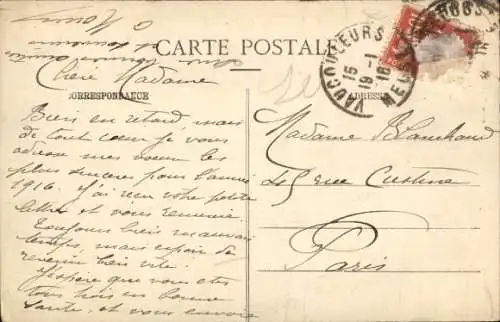 CARTE POSTALE
CORRESPONDANCE
ADRESSE
VAUCOULEURS
15-1
19 16
MEUSE
Chère Madame
Bien en retard, mais
de tout cœur je vous
adresse mes voeux les
plus sincères pour l'année
1916. J'ai reçu votre petite
lettre et vous remercie.
Toujours bien mauvais
temps, mais espoir de
revenir bien vite.
J'espère que vous etes
tous trois en bonne
santé, et vous envoie
Madame Blanchard
45 rue Custine
Paris